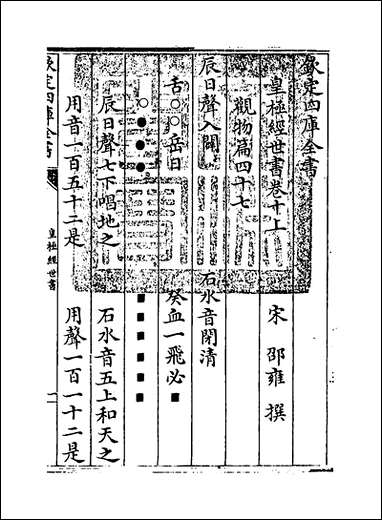 欽定四庫全書
皇極經世書卷十上
宋 邵雍 撰
觀物篇四十七
辰日聲入闢 石水音閉清
舌○○岳日 癸血一飛必■
○●●● ■■■■■■
辰日聲七下唱地之 石水音五上和天之
用音一百五十二是 用聲一百一十二是
欽定四庫全書
皇極經世書